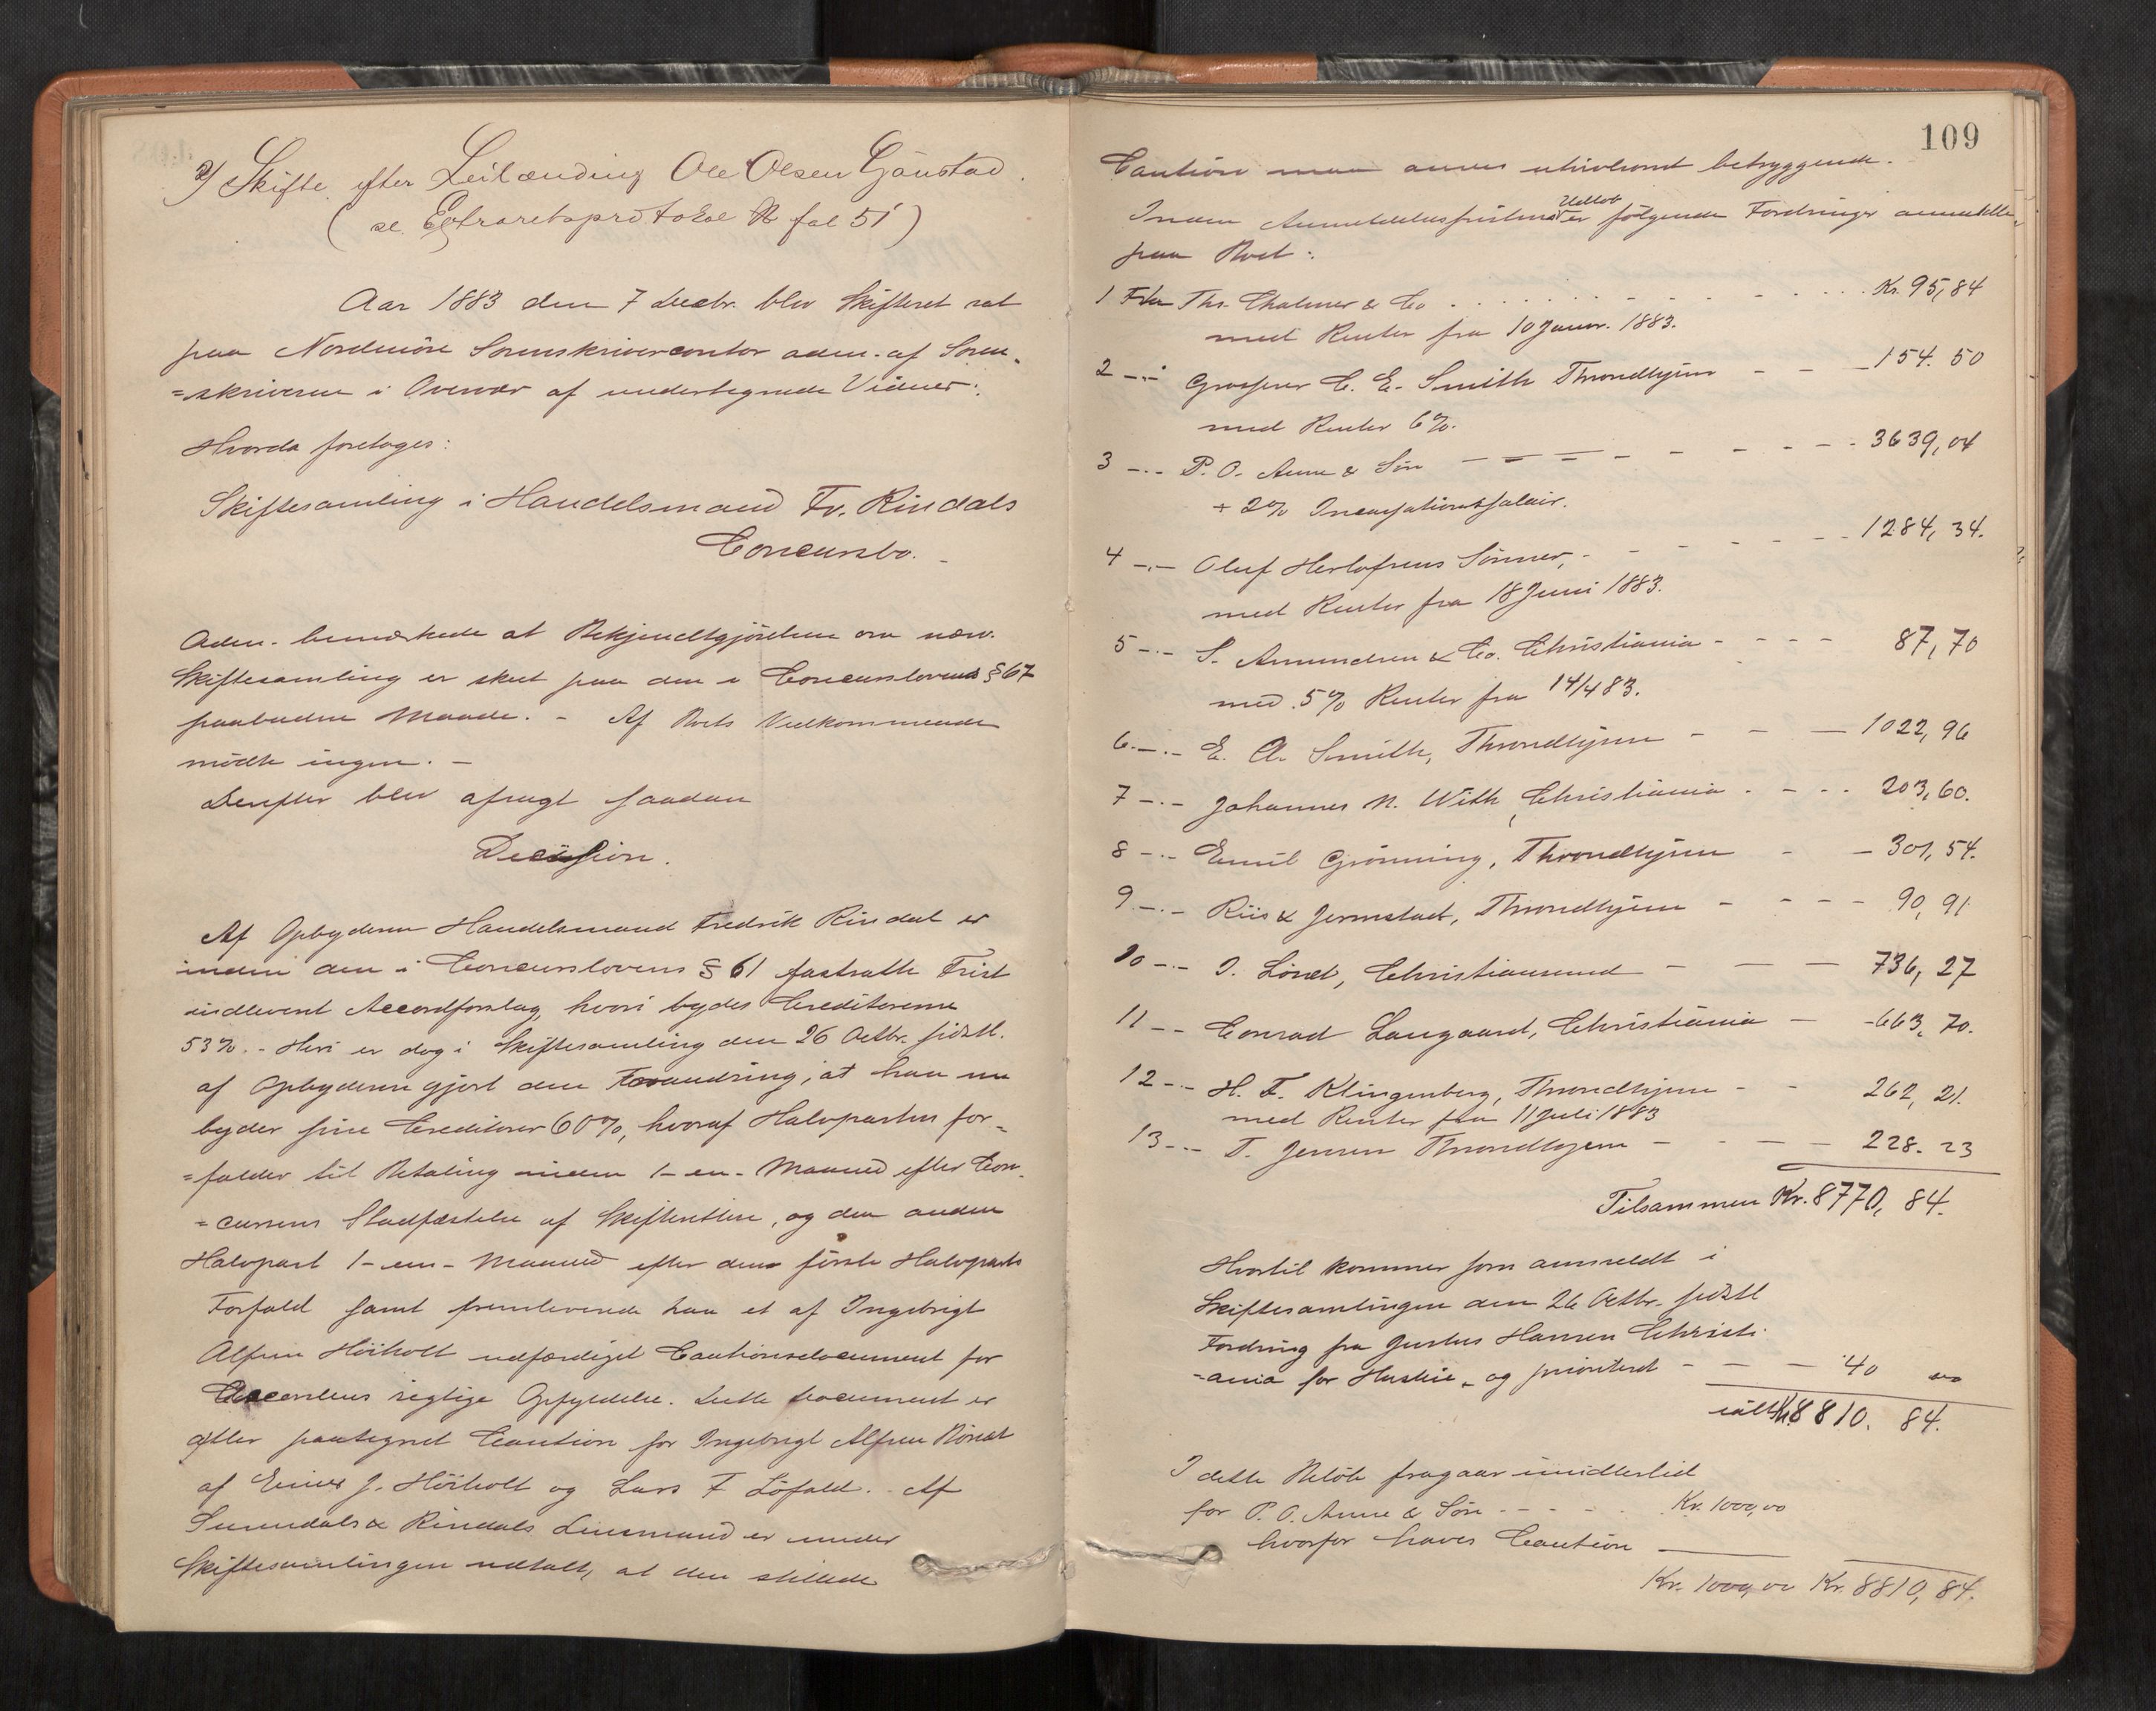 2) Skifte efter Leilænding Ole Olsen Gaustad.
(se Extraretsprotokol No fol 51)
Aar 1883 den 7 Decbr. blev Skifteret sat
paa Nordmöre Sorenskrivercontor adm. af Soren-
=skriveren i Overvær af undertegnede Vidner:
Hvorda foretoges:
Skiftesamling i Handelsmand Fr. Rindals
Concursbo. -
Adm. bemærkede at Bekjendtgjörelsen om nærv.
Skiftesamling er skeet paa den i Concurslovens § 67
paabudne Maade. - Af Boets Vedkommende
mödte ingen. -
Derefter blev afsagt saadan
Decission.
Af Opbyderen Handelsmand Fredrik Rindal er
inden den i Concurslovens § 61 fastsatte Frist
indleveret Accordforslag, hvori bydes Creditorerne
53%. - Heri er dog i Skiftesamling den 26 Octbr. sidstl.
af Opbyderen gjort den Forandring, at han nu
byder sine Creditorer 60%, hvoraf Halvparten for-
=falder til Betaling inden 1 - en - Maaned efter Con-
=cursens Stadfæstelse af Skifteretten, og den anden
Halvpart 1 - en - Maaned efter den förste Halvparts
Forfald samt fremleverede han et af Ingebrigt
Alfsen Höiholt udfærdiget Cautionsdocument for
Accordens rigtige Opfyldelse. Dette Document er
atter paategnet Caution for Ingebrigt Alfsen
af Einar J. Höiholt og Lars F Löfald. Af
Surendals & Rindals Lensmand er under
Skiftesamlingen udtalt, at den stillede
109
Caution maa ansees utvivlsomt betryggende.
Inden Anmeldelsesfristens Udlöb er fölgende Fordringer anmeldte
paa Boet:
1 Fra Ths. Chalmer & Co . . . . Kr. 95,84
med Renter fra 10 Januar. 1883.
2 -"- Grosserer C. E. Smith Throndhjem - - - 154. 50
med Renter 6%.
3 -"- P. O. Aune & Sön - - - - 3639,04
+ 2% Incassationssalair.
4 -"- Oluf Herlofsens Sönner, - - - 1284, 34.
med Renter fra 18 Juni 1883.
5 -"- S. Amundsen & Co. Christiania - - - 87,70
med 5% Renter fra 14/4 83.
6 -"- E. A. Smith, Throndhjem - - - 1022,96
7 -"- Johannes N. With, Christiania - - - 203,60.
8 -"- Emil Grönning, Throndhjem - - 301,54.
9 -"- Riis & Jermstad, Throndhjem - - - 90,91
10 -"- J. Lönd, Christianssund - - - 736,27
11 -"- Conrad Langaard, Christiania - - 663,70.
12 -"- H. F. Klingenberg, Throndhjem - - 262, 21.
med Renter fra 11 Juli 1883
13 -"- T. Jensen Throndhjem - - - 228. 23
Tilsammen Kr. 8770, 84.
Hvortil kommer som anmeldt i
Skiftesamlingen den 26 Octbr. sidstl
Fordring fra Justus Hansen Christi-
-ania for Husleie - og prioriteret - - - 40 "
ialt Kr. 8810. 84.
I dette Belöb fragaar imidlertid
for P. O. Aune & Sön - - - - Kr. 1000,00
hvorfor haves Caution
Kr. 1000,00 Kr. 8810, 84.